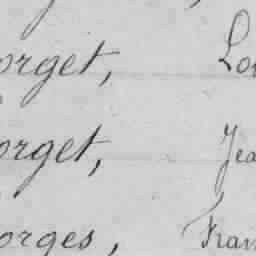 orget, Lou
orget, Jea
orges, Fran